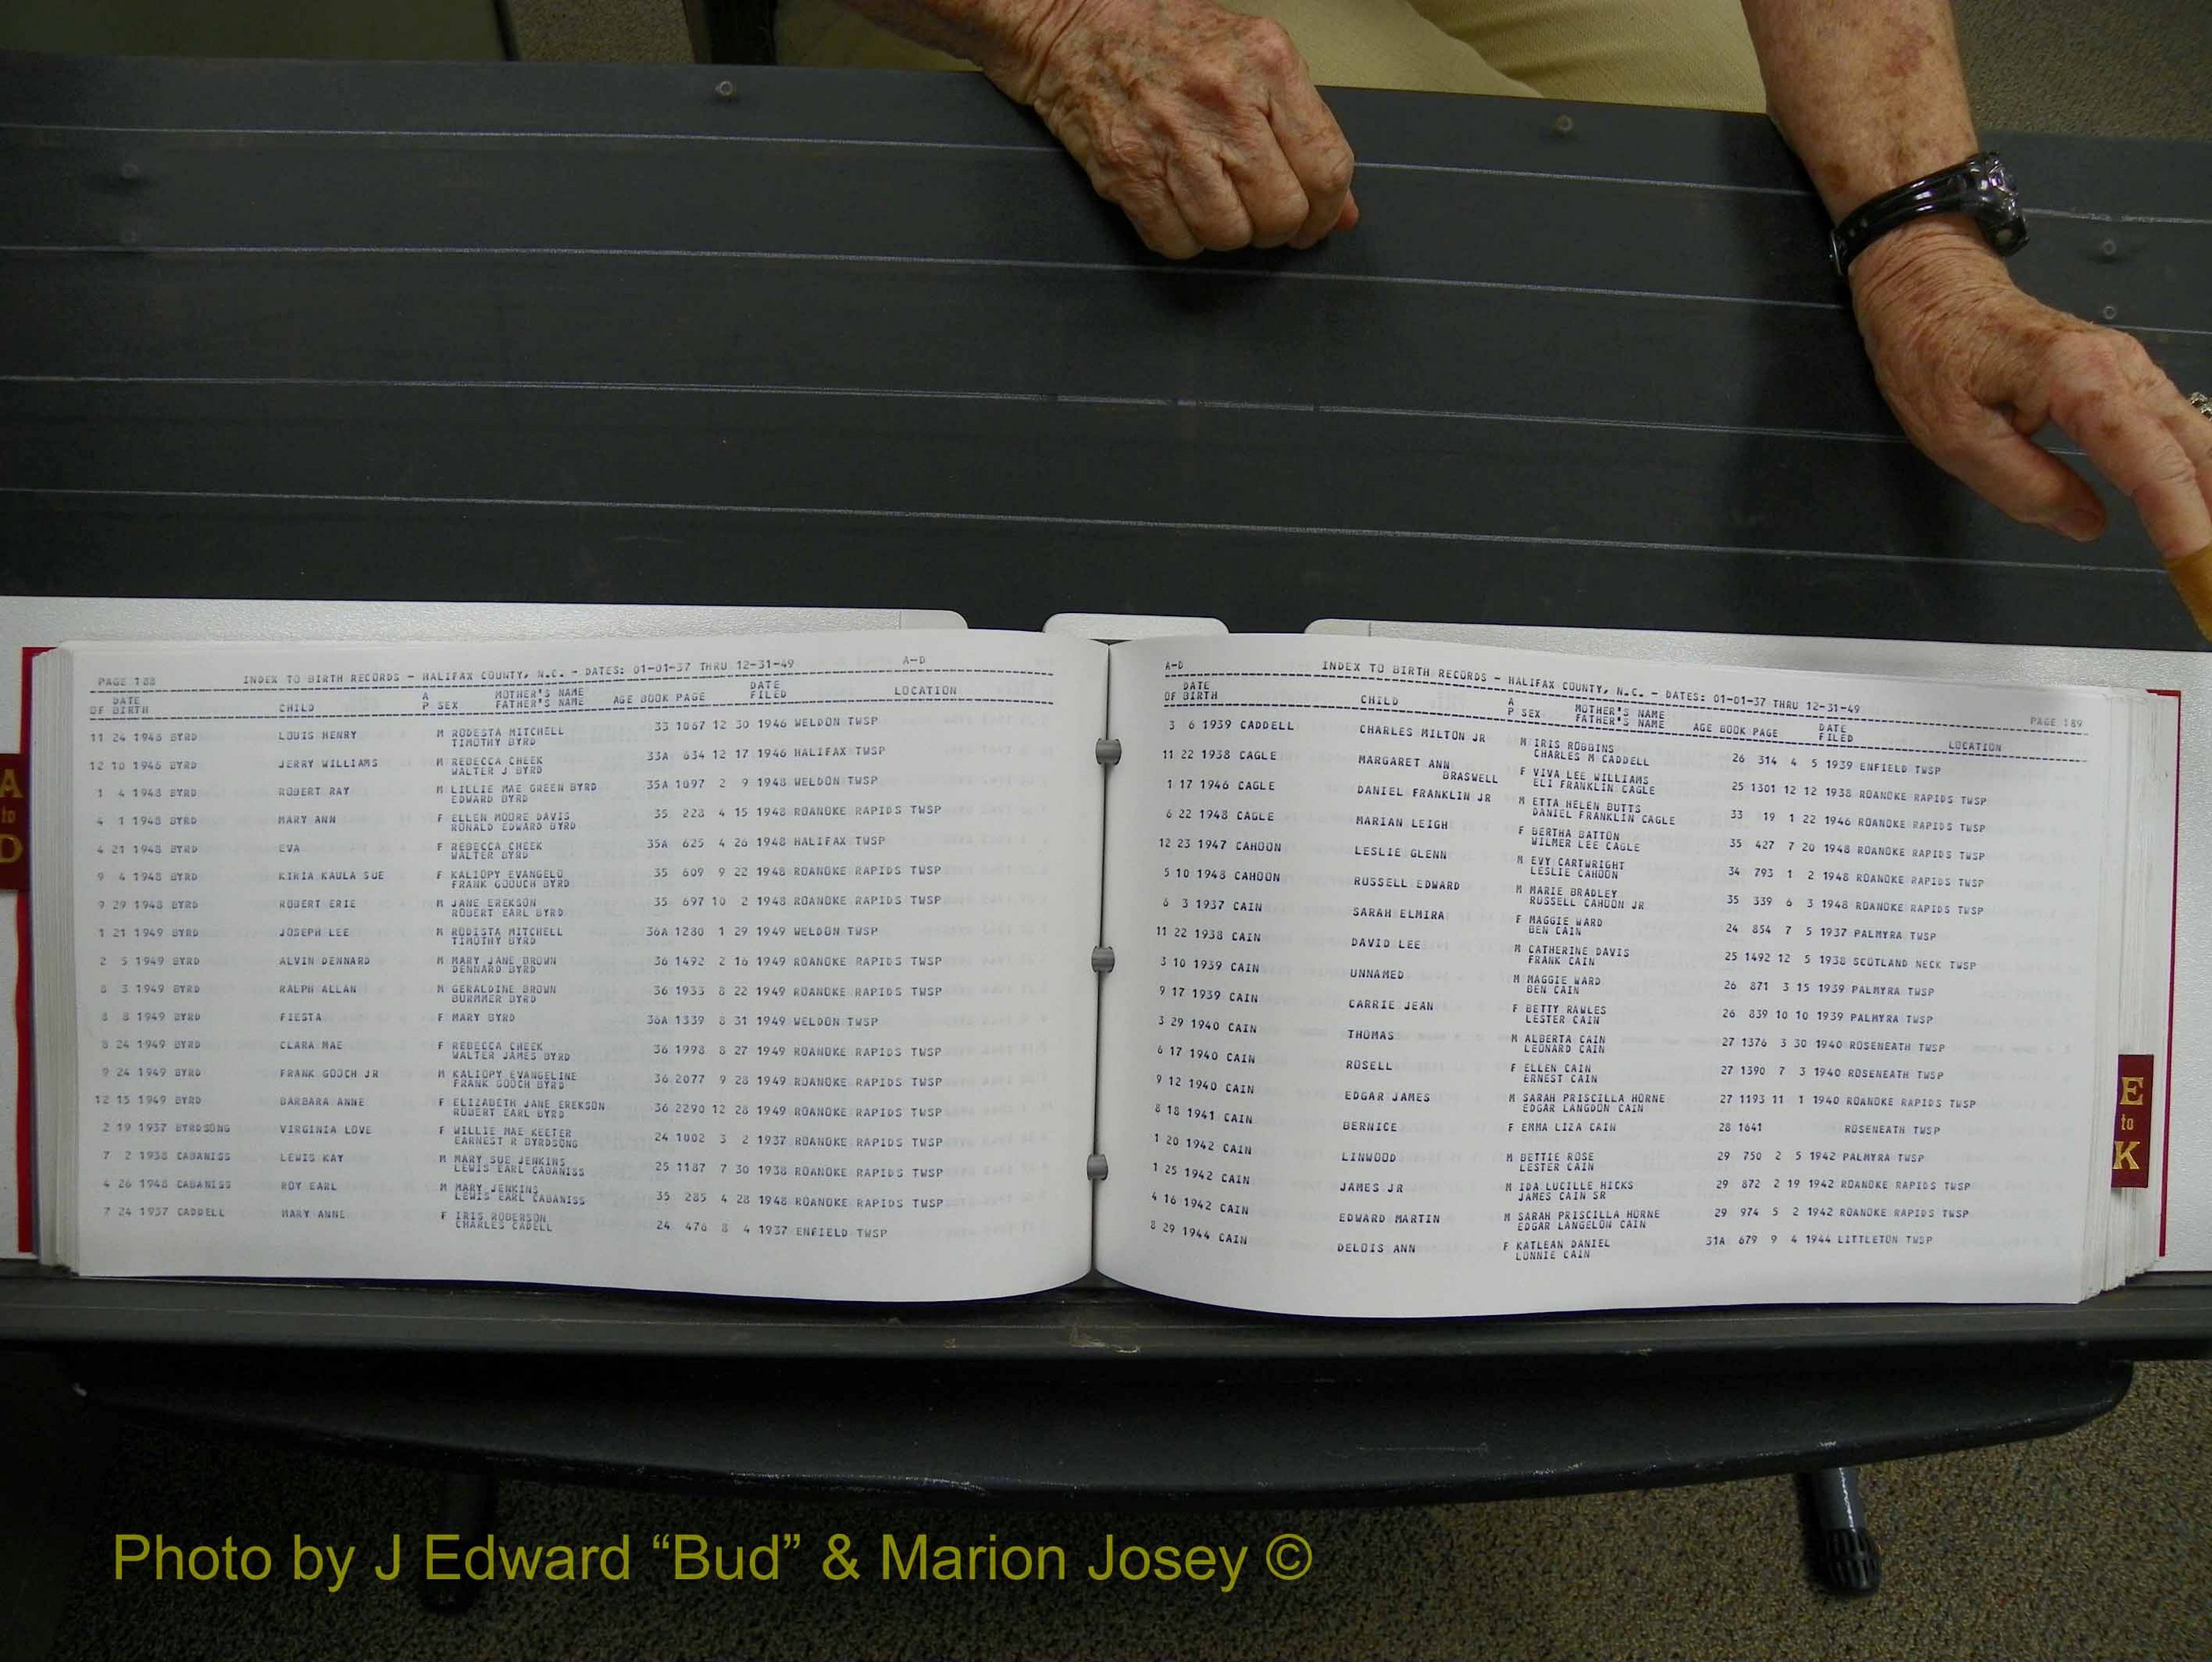 A
to
D
PAGE 188 INDEX TO BIRTH RECORDS - HALIFAX COUNTY, N.C. - DATES: 01-01-37 THRU 12-31-49 A-D
DATE A MOTHER'S NAME DATE
OF BIRTH CHILD P SEX FATHER'S NAME AGE BOOK PAGE FILED LOCATION
11 24 1946 BYRD LOUIS HENRY M RODESTA MITCHELL 33 1067 12 30 1946 WELDON TWSP
TIMOTHY BYRD
12 10 1946 BYRD JERRY WILLIAMS M REBECCA CHEEK 33A 634 12 17 1946 HALIFAX TWSP
WALTER J BYRD
1 4 1948 BYRD ROBERT RAY M LILLIE MAE GREEN BYRD 35A 1097 2 9 1948 WELDON TWSP
EDWARD BYRD
4 1 1948 BYRD MARY ANN F ELLEN MOORE DAVIS 35 223 4 15 1948 ROANOKE RAPIDS TWSP
RONALD EDWARD BYRD
4 21 1948 BYRD EVA F REBECCA CHEEK 35A 625 4 26 1948 HALIFAX TWSP
WALTER BYRD
9 4 1948 BYRD KIRIA KAULA SUE F KALIOPY EVANGELO 35 609 9 22 1948 ROANOKE RAPIDS TWSP
FRANK GOOUCH BYRD
9 29 1948 BYRD ROBERT ERIE M JANE EREKSON 35 697 10 2 1948 ROANOKE RAPIDS TWSP
ROBERT EARL BYRD
1 21 1949 BYRD JOSEPH LEE M RODISTA MITCHELL 36A 1280 1 29 1949 WELDON TWSP
TIMOTHY BYRD
2 5 1949 BYRD ALVIN DENNARD M MARY JANE BROWN 36 1492 2 16 1949 ROANOKE RAPIDS TWSP
DENNARD BYRD
8 3 1949 BYRD RALPH ALLAN M GERALDINE BROWN 36 1933 8 22 1949 ROANOKE RAPIDS TWSP
BURMMER BYRD
8 8 1949 BYRD FIESTA F MARY BYRD 36A 1339 8 31 1949 WELDON TWSP
8 24 1949 BYRD CLARA MAE F REBECCA CHEEK 36 1998 8 27 1949 ROANOKE RAPIDS TWSP
WALTER JAMES BYRD
9 24 1949 BYRD FRANK GOOCH JR M KALIOPY EVANGELINE 36 2077 9 28 1949 ROANOKE RAPIDS TWSP
FRANK GOOCH BYRD
12 15 1949 BYRD BARBARA ANNE F ELIZABETH JANE EREKSON 36 2290 12 28 1949 ROANOKE RAPIDS TWSP
ROBERT EARL BYRD
2 19 1937 BYRDSONG VIRGINIA LOVE F WILLIE MAE KEETER 24 1002 3 2 1937 ROANOKE RAPIDS TWSP
EARNEST R BYRDSONG
7 2 1938 CABANISS LEWIS KAY M MARY SUE JENKINS 25 1187 7 30 1938 ROANOKE RAPIDS TWSP
LEWIS EARL CABANISS
4 26 1948 CABANISS ROY EARL M MARY JENKINS 35 285 4 28 1948 ROANOKE RAPIDS TWSP
LEWIS EARL CABANISS
7 24 1937 CADDELL MARY ANNE F IRIS ROBERSON 24 476 8 4 1937 ENFIELD TWSP
CHARLES CADELL
A-D INDEX TO BIRTH RECORDS - HALIFAX COUNTY, N.C. - DATES: 01-01-37 THRU 12-31-49 PAGE 189
DATE A MOTHER'S NAME DATE
OF BIRTH CHILD P SEX FATHER'S NAME AGE BOOK PAGE FILED LOCATION
3 6 1939 CADDELL CHARLES MILTON JR M IRIS ROBBINS 26 314 4 5 1939 ENFIELD TWSP
CHARLES M CADDELL
11 22 1938 CAGLE MARGARET ANN F VIVA LEE WILLIAMS 25 1301 12 12 1938 ROANOKE RAPIDS TWSP
BRASWELL ELI FRANKLIN CAGLE
1 17 1946 CAGLE DANIEL FRANKLIN JR M ETTA HELEN BUTTS 33 19 1 22 1946 ROANOKE RAPIDS TWSP
DANIEL FRANKLIN CAGLE
6 22 1948 CAGLE MARIAN LEIGH F BERTHA BATTON 35 427 7 20 1948 ROANOKE RAPIDS TWSP
WILMER LEE CAGLE
12 23 1947 CAHOON LESLIE GLENN M EVY CARTWRIGHT 34 793 1 2 1948 ROANOKE RAPIDS TWSP
LESLIE CAHOON
5 10 1948 CAHOON RUSSELL EDWARD M MARIE BRADLEY 35 339 6 3 1948 ROANOKE RAPIDS TWSP
RUSSELL CAHOON JR
6 3 1937 CAIN SARAH ELMIRA F MAGGIE WARD 24 854 7 5 1937 PALMYRA TWSP
BEN CAIN
11 22 1938 CAIN DAVID LEE M CATHERINE DAVIS 25 1492 12 5 1938 SCOTLAND NECK TWSP
FRANK CAIN
3 10 1939 CAIN UNNAMED M MAGGIE WARD 26 871 3 15 1939 PALMYRA TWSP
BEN CAIN
9 17 1939 CAIN CARRIE JEAN F BETTY RAWLES 26 839 10 10 1939 PALMYRA TWSP
LESTER CAIN
3 29 1940 CAIN THOMAS M ALBERTA CAIN 27 1376 3 30 1940 ROSENEATH TWSP
LEONARD CAIN
6 17 1940 CAIN ROSELL F ELLEN CAIN 27 1390 7 3 1940 ROSENEATH TWSP
ERNEST CAIN
9 12 1940 CAIN EDGAR JAMES M SARAH PRISCILLA HORNE 27 1193 11 1 1940 ROANOKE RAPIDS TWSP
EDGAR LANGDON CAIN
8 18 1941 CAIN BERNICE F EMMA LIZA CAIN 28 1641 ROSENEATH TWSP
1 20 1942 CAIN LINWOOD M BETTIE ROSE 29 750 2 5 1942 PALMYRA TWSP
LESTER CAIN
1 25 1942 CAIN JAMES JR M IDA LUCILLE HICKS 29 872 2 19 1942 ROANOKE RAPIDS TWSP
JAMES CAIN SR
4 16 1942 CAIN EDWARD MARTIN M SARAH PRISCILLA HORNE 29 974 5 2 1942 ROANOKE RAPIDS TWSP
EDGAR LANGELON CAIN
8 29 1944 CAIN DELOIS ANN F KATLEAN DANIEL 31A 679 9 4 1944 LITTLETON TWSP
LONNIE CAIN
E
to
K
Photo by J Edward “Bud” & Marion Josey ©